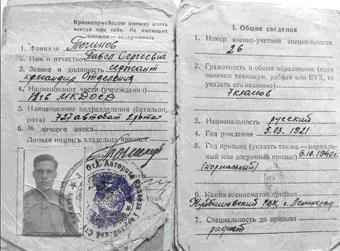 Красноармейскую книжку иметь
всегда при себе. Не имеющих
книжек — задерживать.
1. Фамилия
2. Имя и отчество Павел Сергеевич
3. Звание и должность сержант
командир отделения
4. Наименование части (учреждения)
5. Наименование подразделения (батальон,
рота) 727 автобат
6. № личного знака
Личная подпись владельца
I. Общие сведения
1. Номер военно-учетной специальности
26
2. Грамотность и общее образование (если
окончил техникум, рабфак или ВУЗ, то
указать его название)
7 классов
3. Национальность русский
4. Год рождения 5.03.1921
5. Год призыва (указать также — нормаль-
ный или досрочный призыв) 6.10.1940г
(нормальный)
6. Каким военкоматом призван
Куйбышевский РВК г. Ленинград
7. Специальность до призыва
радист